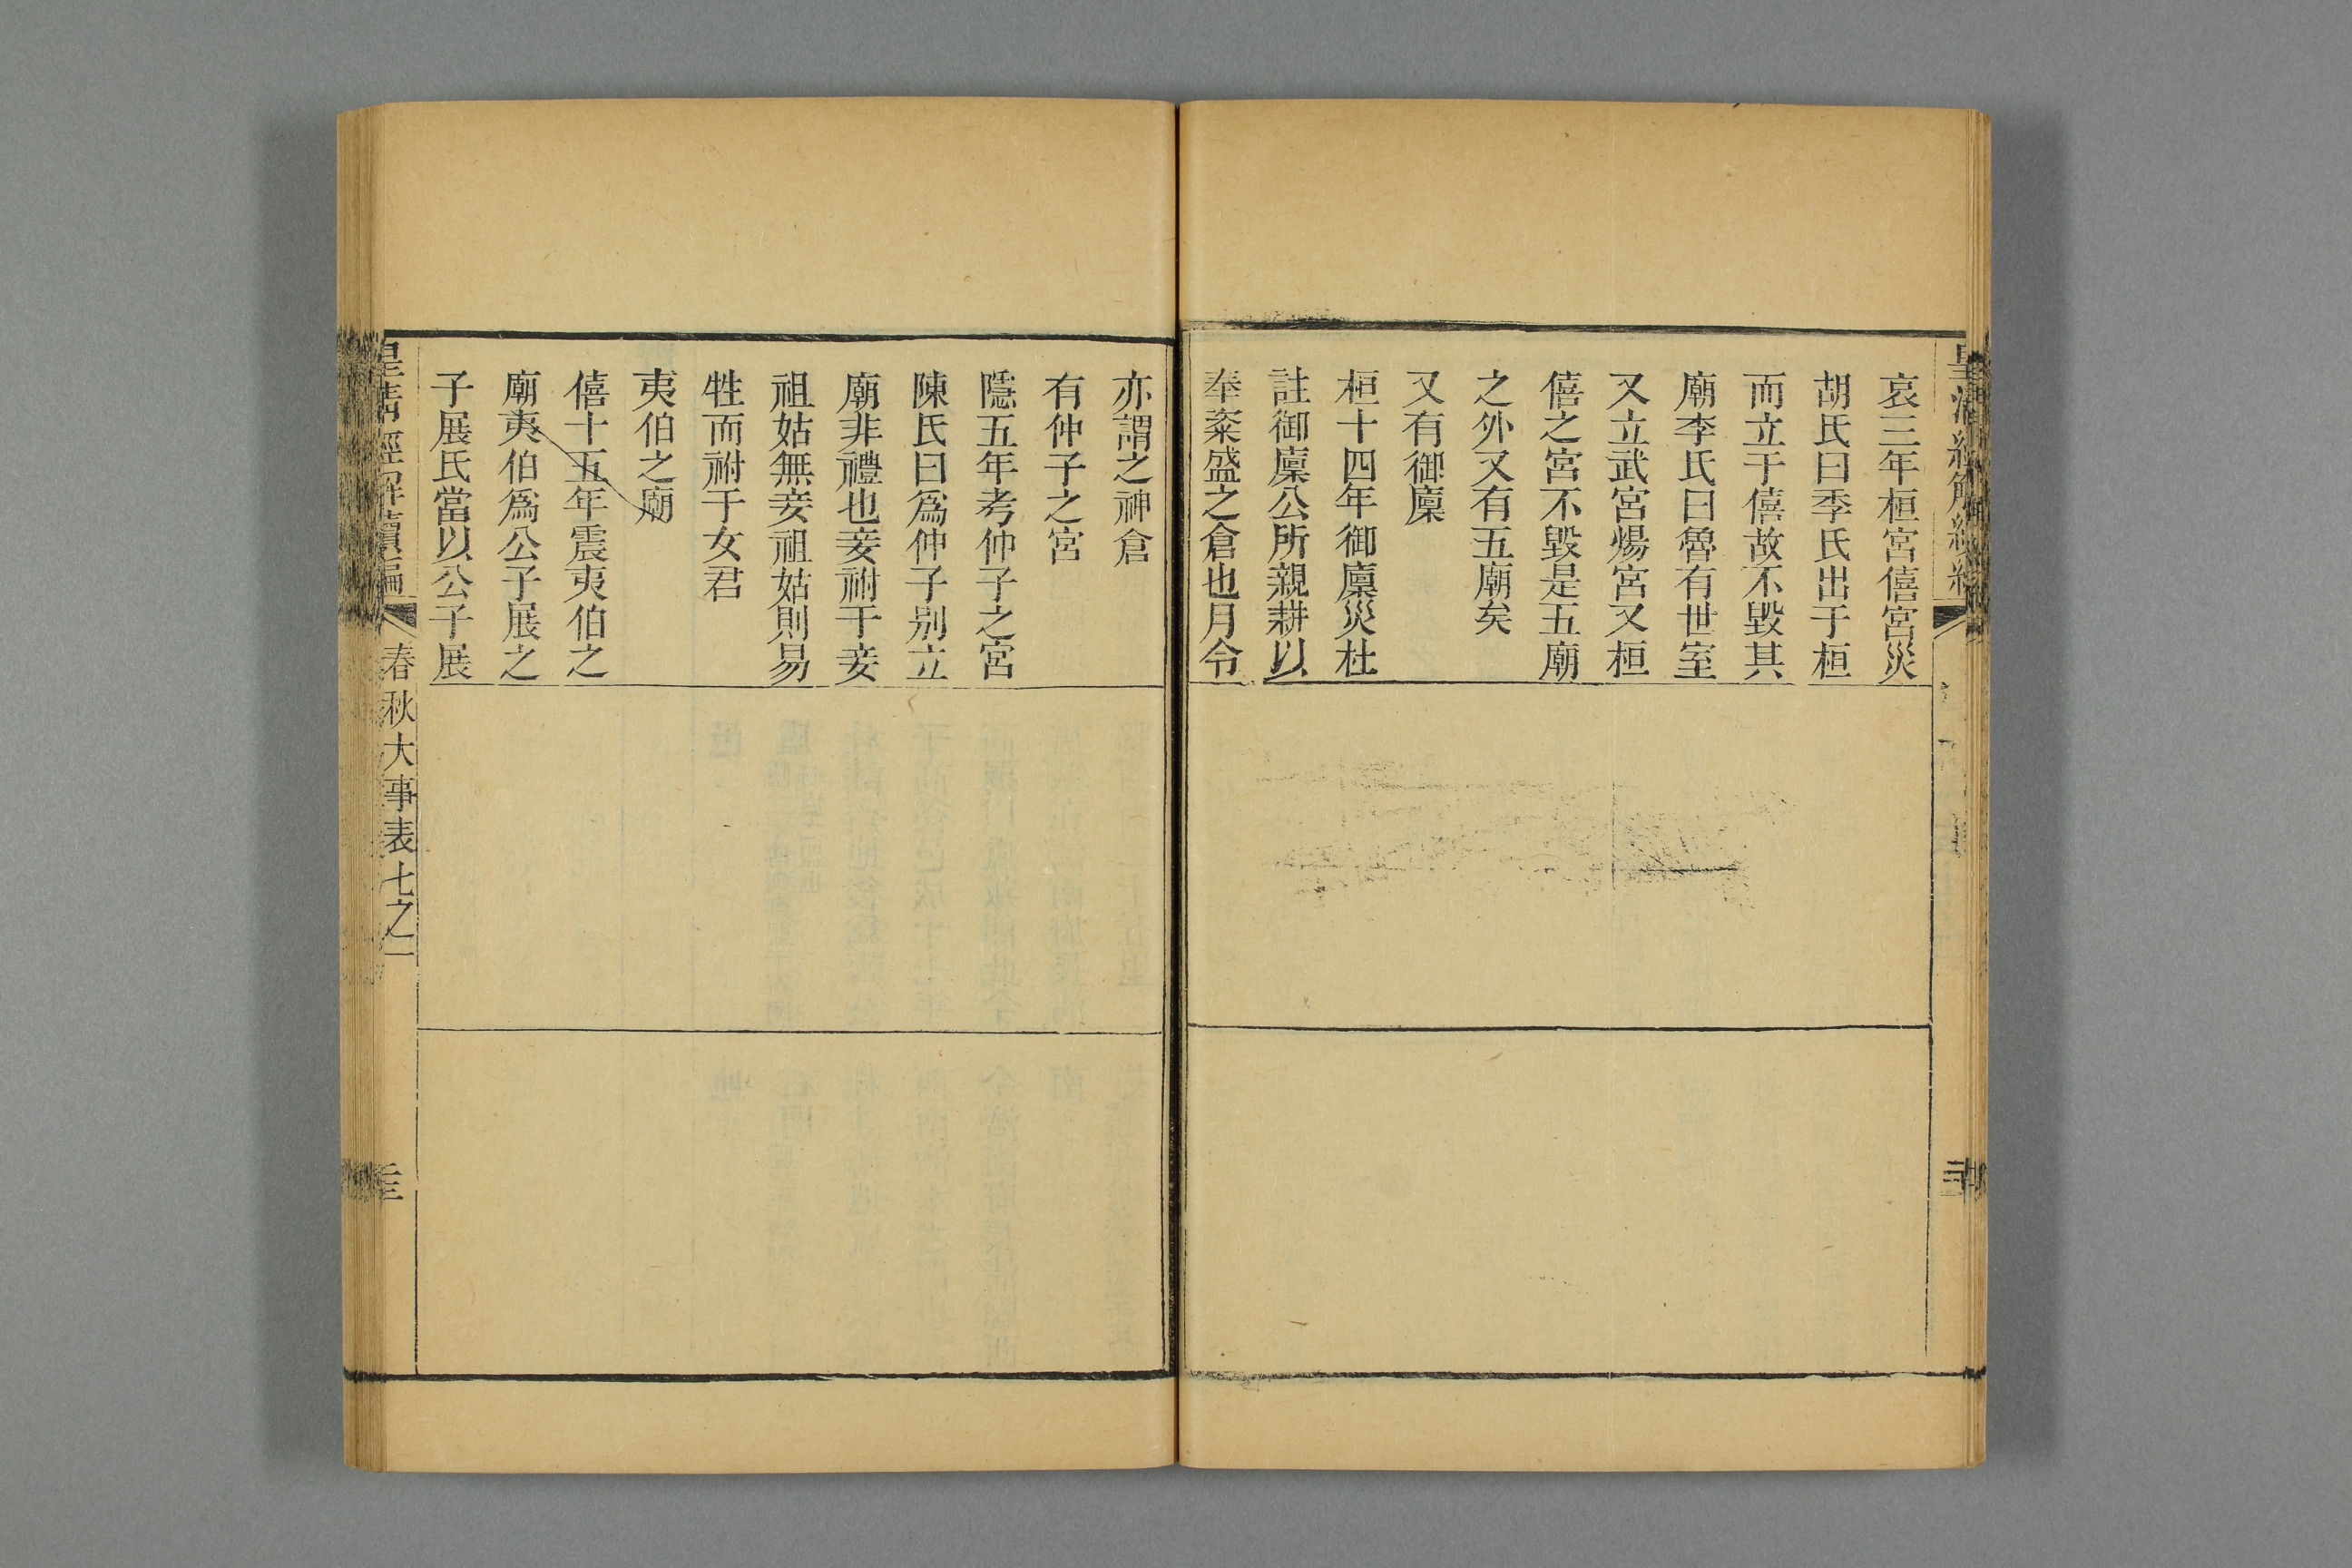 哀三年桓宮僖宮災
胡氏曰季氏出于桓
而立于僖故不毀其
廟李氏曰魯有世室
又立武宮煬宮又桓
僖之宮不毀是五廟
之外又有五廟矣
又有御廩
桓十四年御廩災杜
註御廩公所親耕以
奉粢盛之倉也月令
亦謂之神倉
有仲子之宮
隱五年考仲子之宮
陳氏曰爲仲子別立
廟非禮也妾祔于妾
祖姑無妾祖姑則易
牲而祔于女君
夷伯之廟
僖十五年震夷伯之
廟夷伯爲公子展之
子展氏當以公子展
皇清經解續編
春秋大事表七之一